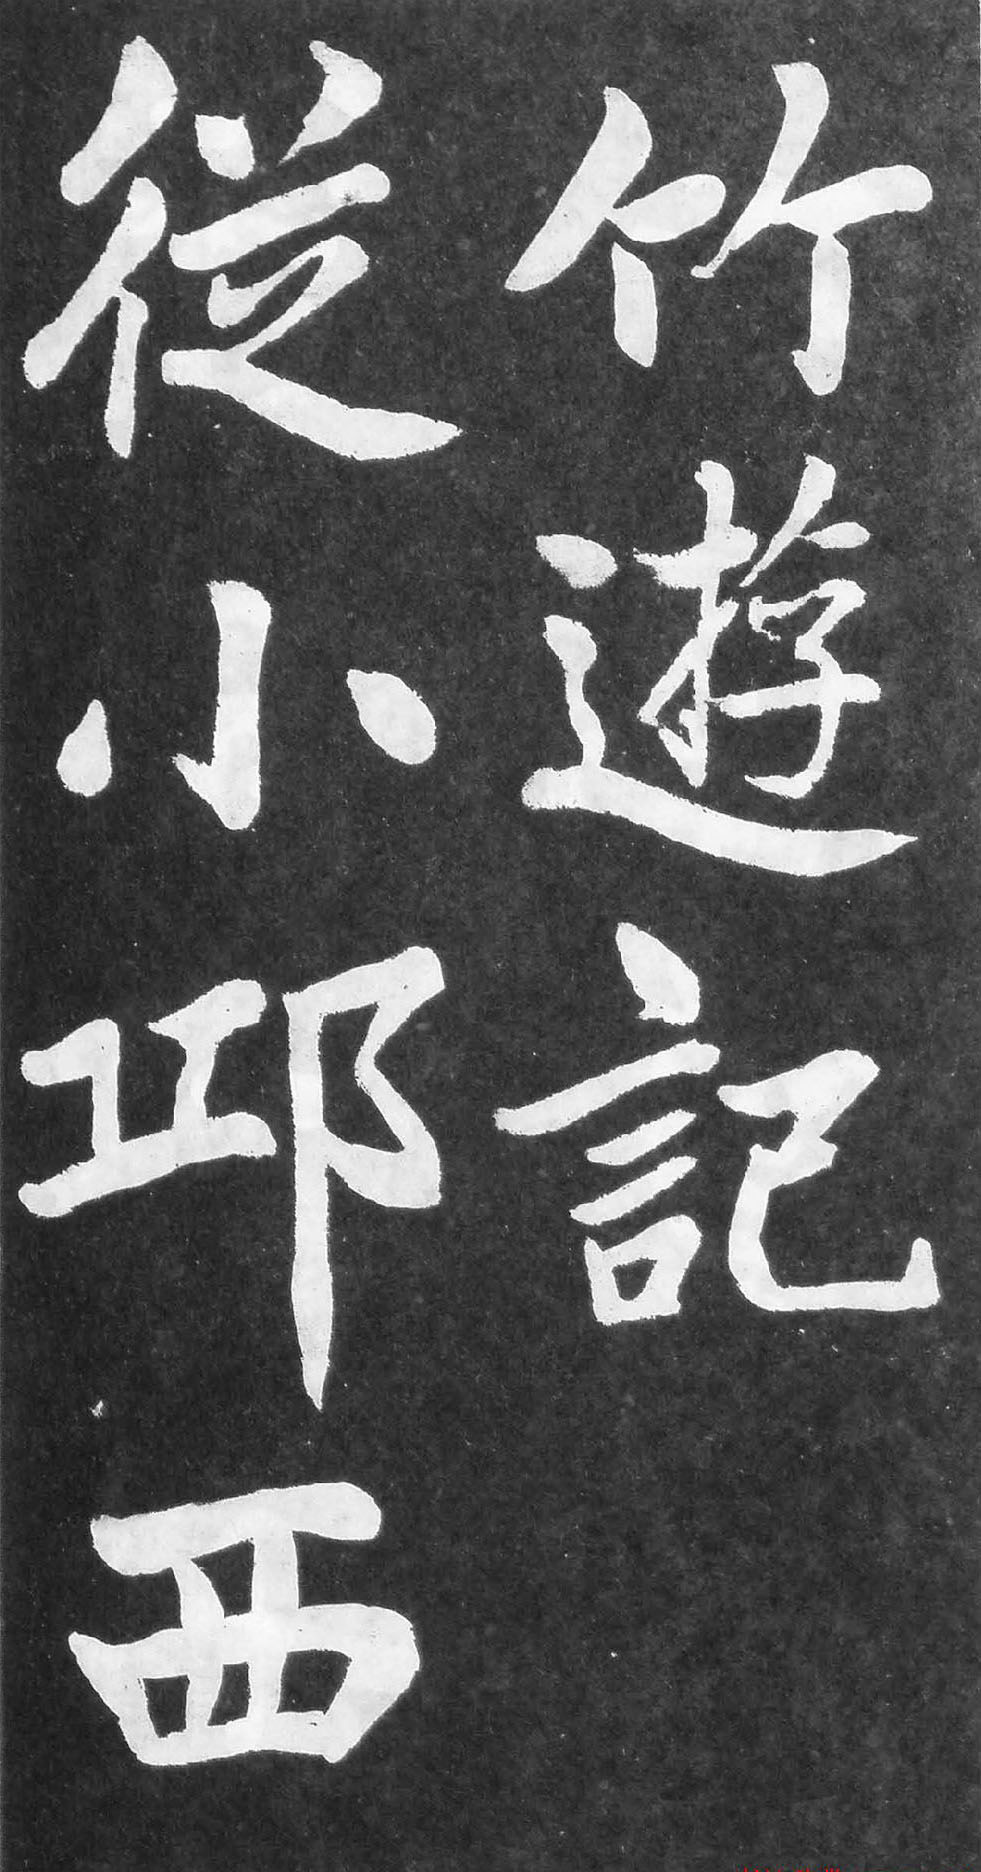 竹遊記
從小邛西